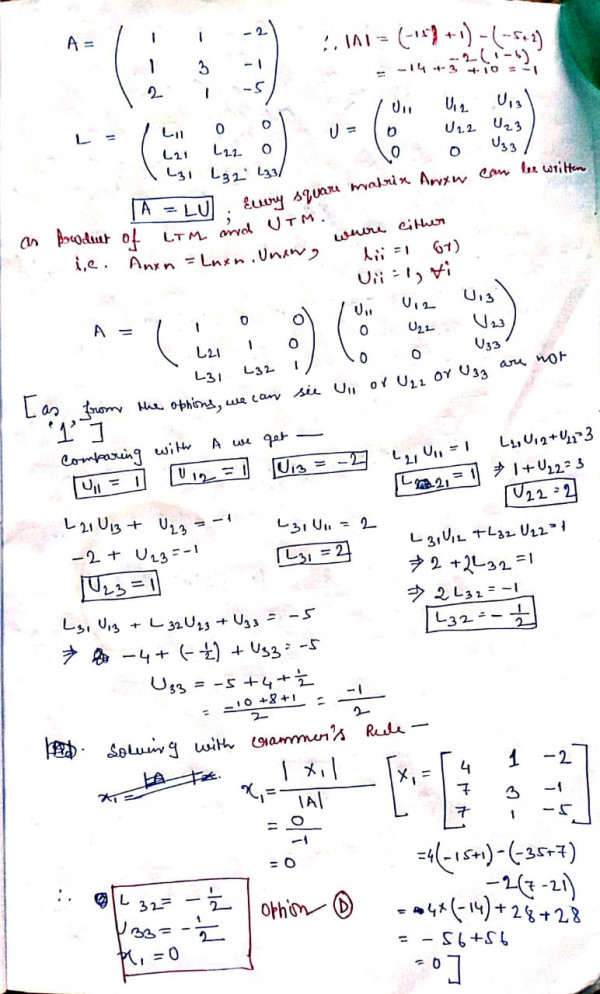 A = ( 1 1 -2
1 3 -1
2 1 -5 )
∴ |A| = (-15 + 1) - (-5+2)
-2(1-6)
= -14 + 3 + 10 = -1
L = ( L11 0 0
L21 L22 0
L31 L32 L33 )
U = ( U11 U12 U13
0 U22 U23
0 0 U33 )
A = LU ; Every square matrix Anxn can be written
as product of LTM and UTM.
i.e. Anxn = Lnxn . Unxn, where either
lii = 1 (or)
Uii = 1, ∀i
A = ( 1 0 0
L21 1 0
L31 L32 1 )
( U11 U12 U13
0 U22 U23
0 0 U33 )
[as from the options, we can see U11 or U22 or U33 are not
'1' ]
Comparing with A we get —
U11 = 1 U12 = 1 U13 = -2
L21 U11 = 1
L21 = 1
L21 U12 + U22 = 3
⇒ 1 + U22 = 3
U22 = 2
L21 U13 + U23 = -1
-2 + U23 = -1
U23 = 1
L31 U11 = 2
L31 = 2
L31 U12 + L32 U22 = 1
⇒ 2 + 2L32 = 1
⇒ 2 L32 = -1
L32 = - 1/2
L31 U13 + L32 U23 + U33 = -5
⇒ -4 + (-1/2) + U33 = -5
U33 = -5 + 4 + 1/2
= -10 + 8 + 1 / 2 = -1/2
Solving with Crammer's Rule —
x1 = |X1| / |A|
= 0 / -1
= 0
[ X1 = [ 4 1 -2
7 3 -1
7 1 -5 ]
= 4(-15+1) - (-35+7)
-2(7-21)
= 4x(-14) + 28 + 28
= -56 + 56
= 0 ]
∴ L32 = - 1/2
U33 = - 1/2
x1 = 0
Option D